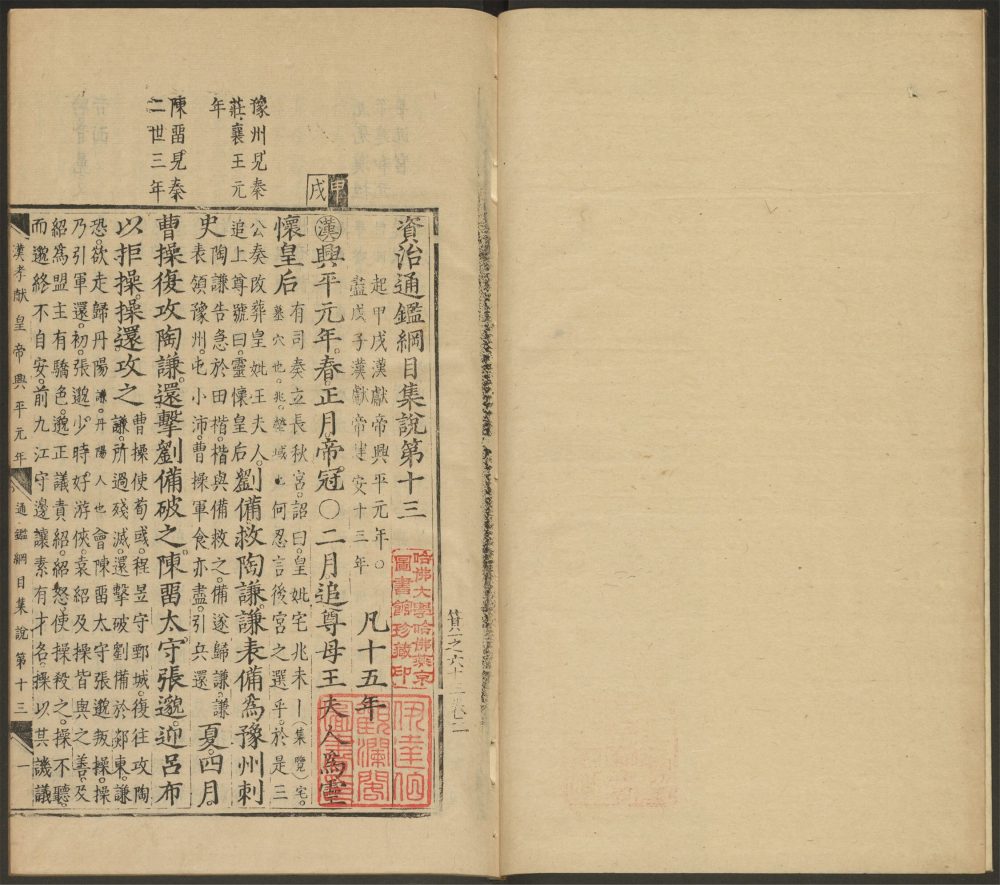 豫州見秦
莊襄王元
年
陳畱見秦
二世三年
甲
戌
資治通鑑綱目集說第十三
起甲戌漢獻帝興平元年○
盡戊子漢獻帝建安十三年
凡十五年
漢興平元年春正月帝冠○二月追尊母王夫人爲靈
懷皇后
有司奏立長秋宮詔曰皇妣宅兆未卜（集覽）宅
墓穴也兆塋域也何忍言後宮之選乎於是三
公奏改葬皇妣王夫人
追上尊號曰靈懷皇后
劉備救陶謙謙表備爲豫州刺
史
陶謙告急於田楷楷與備救之備遂歸謙謙
表領豫州屯小沛曹操軍食亦盡引兵還
夏四月
曹操復攻陶謙還擊劉備破之陳畱太守張邈迎呂布
以拒操操還攻之
曹操使荀彧程昱守鄄城復往攻陶
謙所過殘滅還擊破劉備於郯東謙
恐欲走歸丹陽謙丹陽人也會陳畱太守張邈叛操操
乃引軍還初張邈少時好游俠袁紹及操皆與之善及
紹爲盟主有驕色邈正議責紹紹怒使操殺之操不聽
而邈終不自安前九江守邊讓素有才名操以其譏議
漢孝獻皇帝興平元年
通鑑綱目集說第十三
一
哈佛大學哈佛燕京
圖書館珍藏印